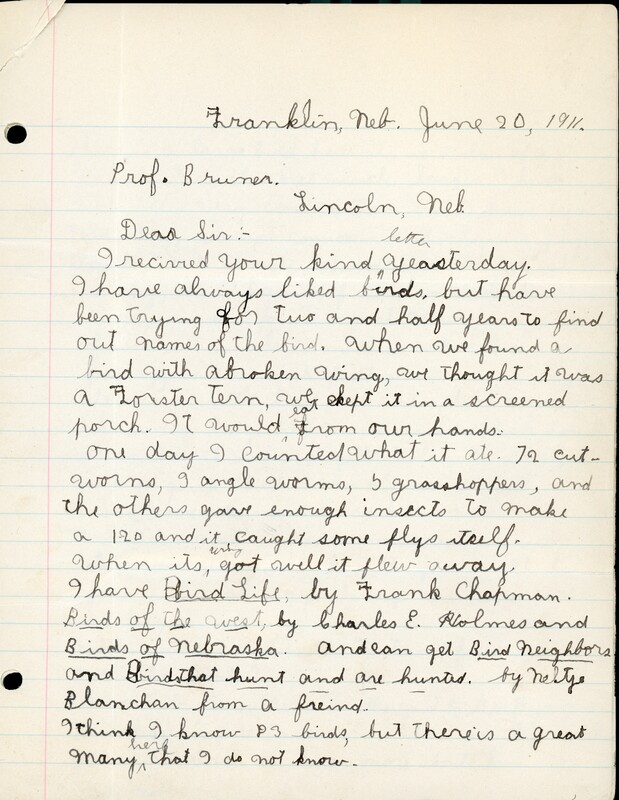 Franklin, Neb. June 20, 1911.
Prof. Bruner.
Lincoln, Neb.
Dear Sir:-
letter
I recirved your kind yeasterday.
I have always liked birds, but have
been trying for two and half years to find
out names of the bird. When we found a
bird with abroken wing, we thought it was
a Forster tern, we kept it in a screened
eat
porch. It would from our hands.
One day I counted what it ate. 72 cut-
worms, 9 angle worms, 5 grasshoppers, and
the others gave enough insects to make
a 120 and it caught some flys itself.
wing
When its, got well it flew away.
I have Bird Life, by Frank Chapman.
Birds of the west, by Charles E. Holmes and
Birds of Nebraska. and can get Bird Neighbors
and Birds that hunt and are hunted. by Neltje
Blanchan from a freind.
I think I know 83 birds, but there is a great
here
many that I do not know.